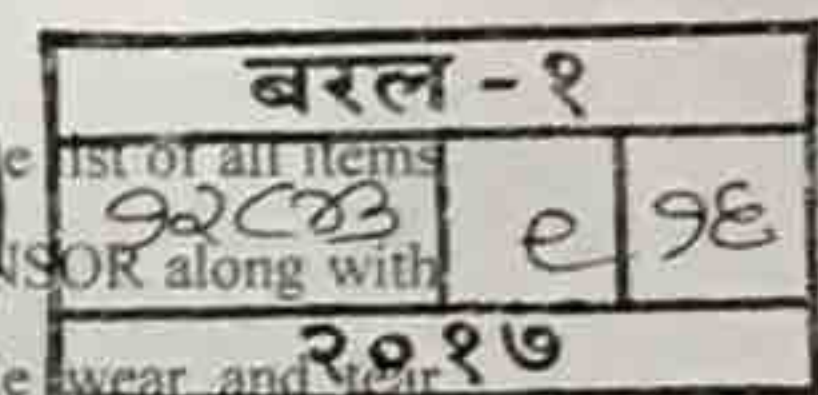 बरल - १
list of all items
९ १६
NSOR along with
२०१७
wear and tear